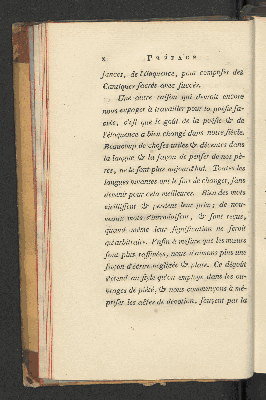 x PRÉFACE
sances, de l'éloquence, pour composer des
Cantiques sacrés avec succès.
Une autre raison qui devroit encore
nous engager à travailler pour la poésie sa-
crée, c'est que le goût de la poésie & de
l'éloquence a bien changé dans notre siècle.
Beaucoup de choses utiles & décentes dans
la langue & la façon de penser de nos pè-
res, ne le sont plus aujourd'hui. Toutes les
langues vivantes ont le sort de changer, sans
devenir pour cela meilleures. Bien des mots
vieillissent & perdent leur prix; de nou-
veaux mots s'introduisent, & sont reçus,
quand même leur signification ne seroit
qu'arbitraire. Enfin à mesure que les mœurs
sont plus raffinées, nous n'aimons plus une
façon d'écrire négligée & plate. Ce dégoût
s'étend au style qu'on emploie dans les ou-
vrages de piété, & nous commençons à mé-
priser les actes de dévotion, souvent par la